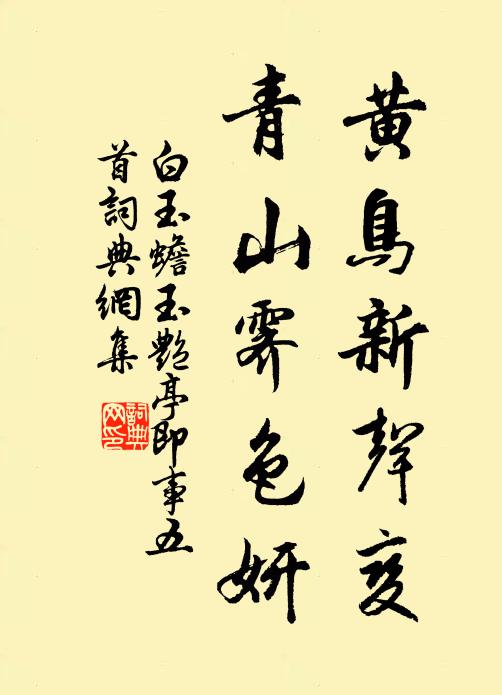 黄鳥新聲変
青山霽色妍
白玉蟾玉艷亭即事五
首詞典網集
詞典
网印